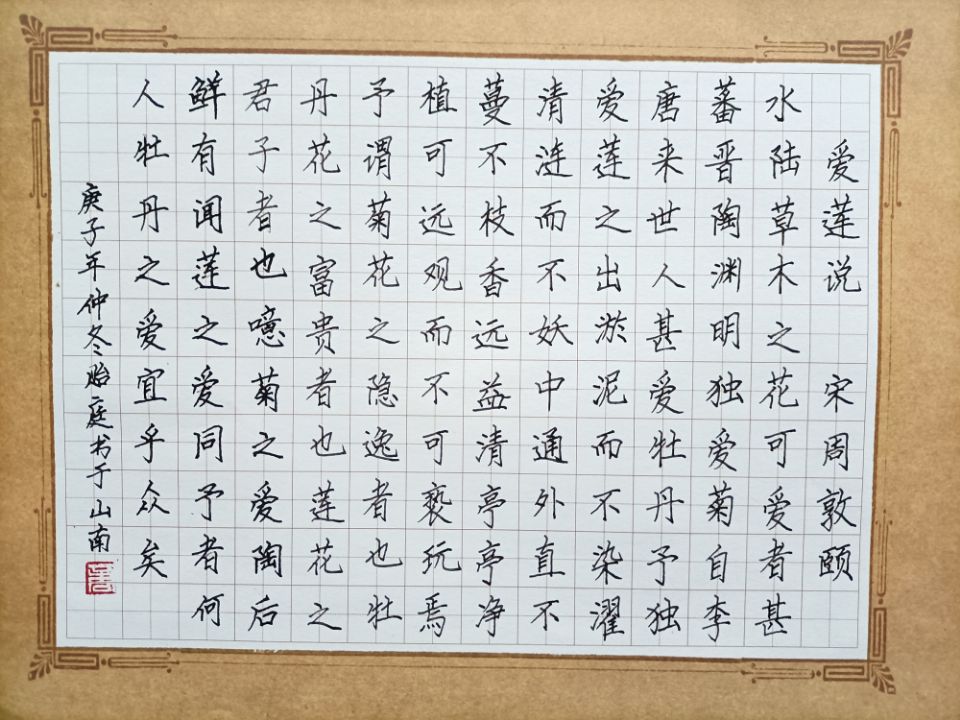 爱莲说 宋周敦颐
水陆草木之花可爱者甚
蕃晋陶渊明独爱菊自李
唐来世人甚爱牡丹予独
爱莲之出淤泥而不染濯
清涟而不妖中通外直不
蔓不枝香远益清亭亭净
植可远观而不可亵玩焉
予谓菊花之隐逸者也牡
丹花之富贵者也莲花之
君子者也噫菊之爱陶后
鲜有闻莲之爱同予者何
人牡丹之爱宜乎众矣
庚子年仲冬贻庭书于山南